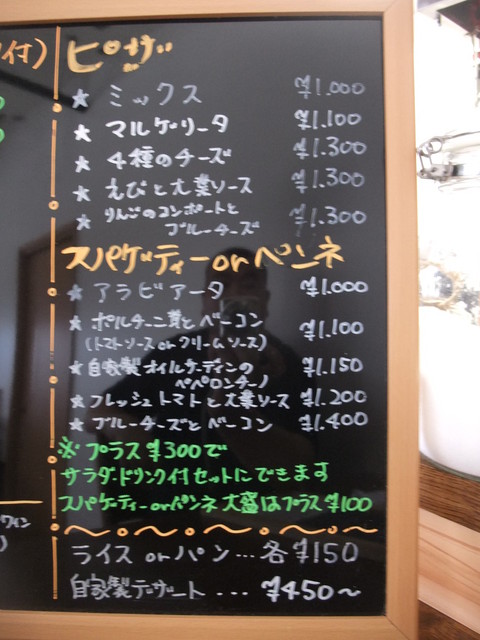 付)
ピザ
★ ミックス ¥1.000
★ マルゲリータ ¥1.100
★ 4種のチーズ ¥1.300
★ えびと大葉ソース ¥1.300
★ りんごのコンポートと
ブルーチーズ ¥1.300
スパゲッティーorペンネ
★ アラビアータ ¥1.000
★ ポルチーニ茸とベーコン ¥1.100
(トマトソース or クリームソース)
★ 自家製オイルサーディンの ¥1.150
ペペロンチーノ
★ フレッシュトマトと大葉ソース ¥1.200
★ ブルーチーズとベーコン ¥1.400
※ プラス¥300で
サラダ・ドリンク付セットにできます
スパゲッティーorペンネ 大盛はプラス¥100
ワイン
)
ライス or パン…各¥150
自家製デザート ... ¥450〜